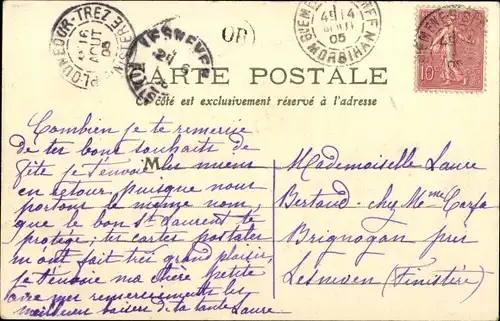 PLOUNEOUR-TREZ
16
AOUT
05
FINISTERE
LESNEVEN
OR
14
05
MORBIHAN
10
CARTE POSTALE
Ce côté est exclusivement réservé à l'adresse
M
Combien je te remercie
de tes bons souhaits de
fête je t'envoi les miens
en retour, puisque nous
portons le même nom,
que le bon St Laurent te
protège; tes cartes postales
m'ont fait très grand plaisir,
je t'envoie ma chère petite
avec mes remerciements les
meilleurs baisers de ta tante Laure
Mademoiselle Laure
Bertaud chez Mme
Brignogan près
Lesneven (Finistère)